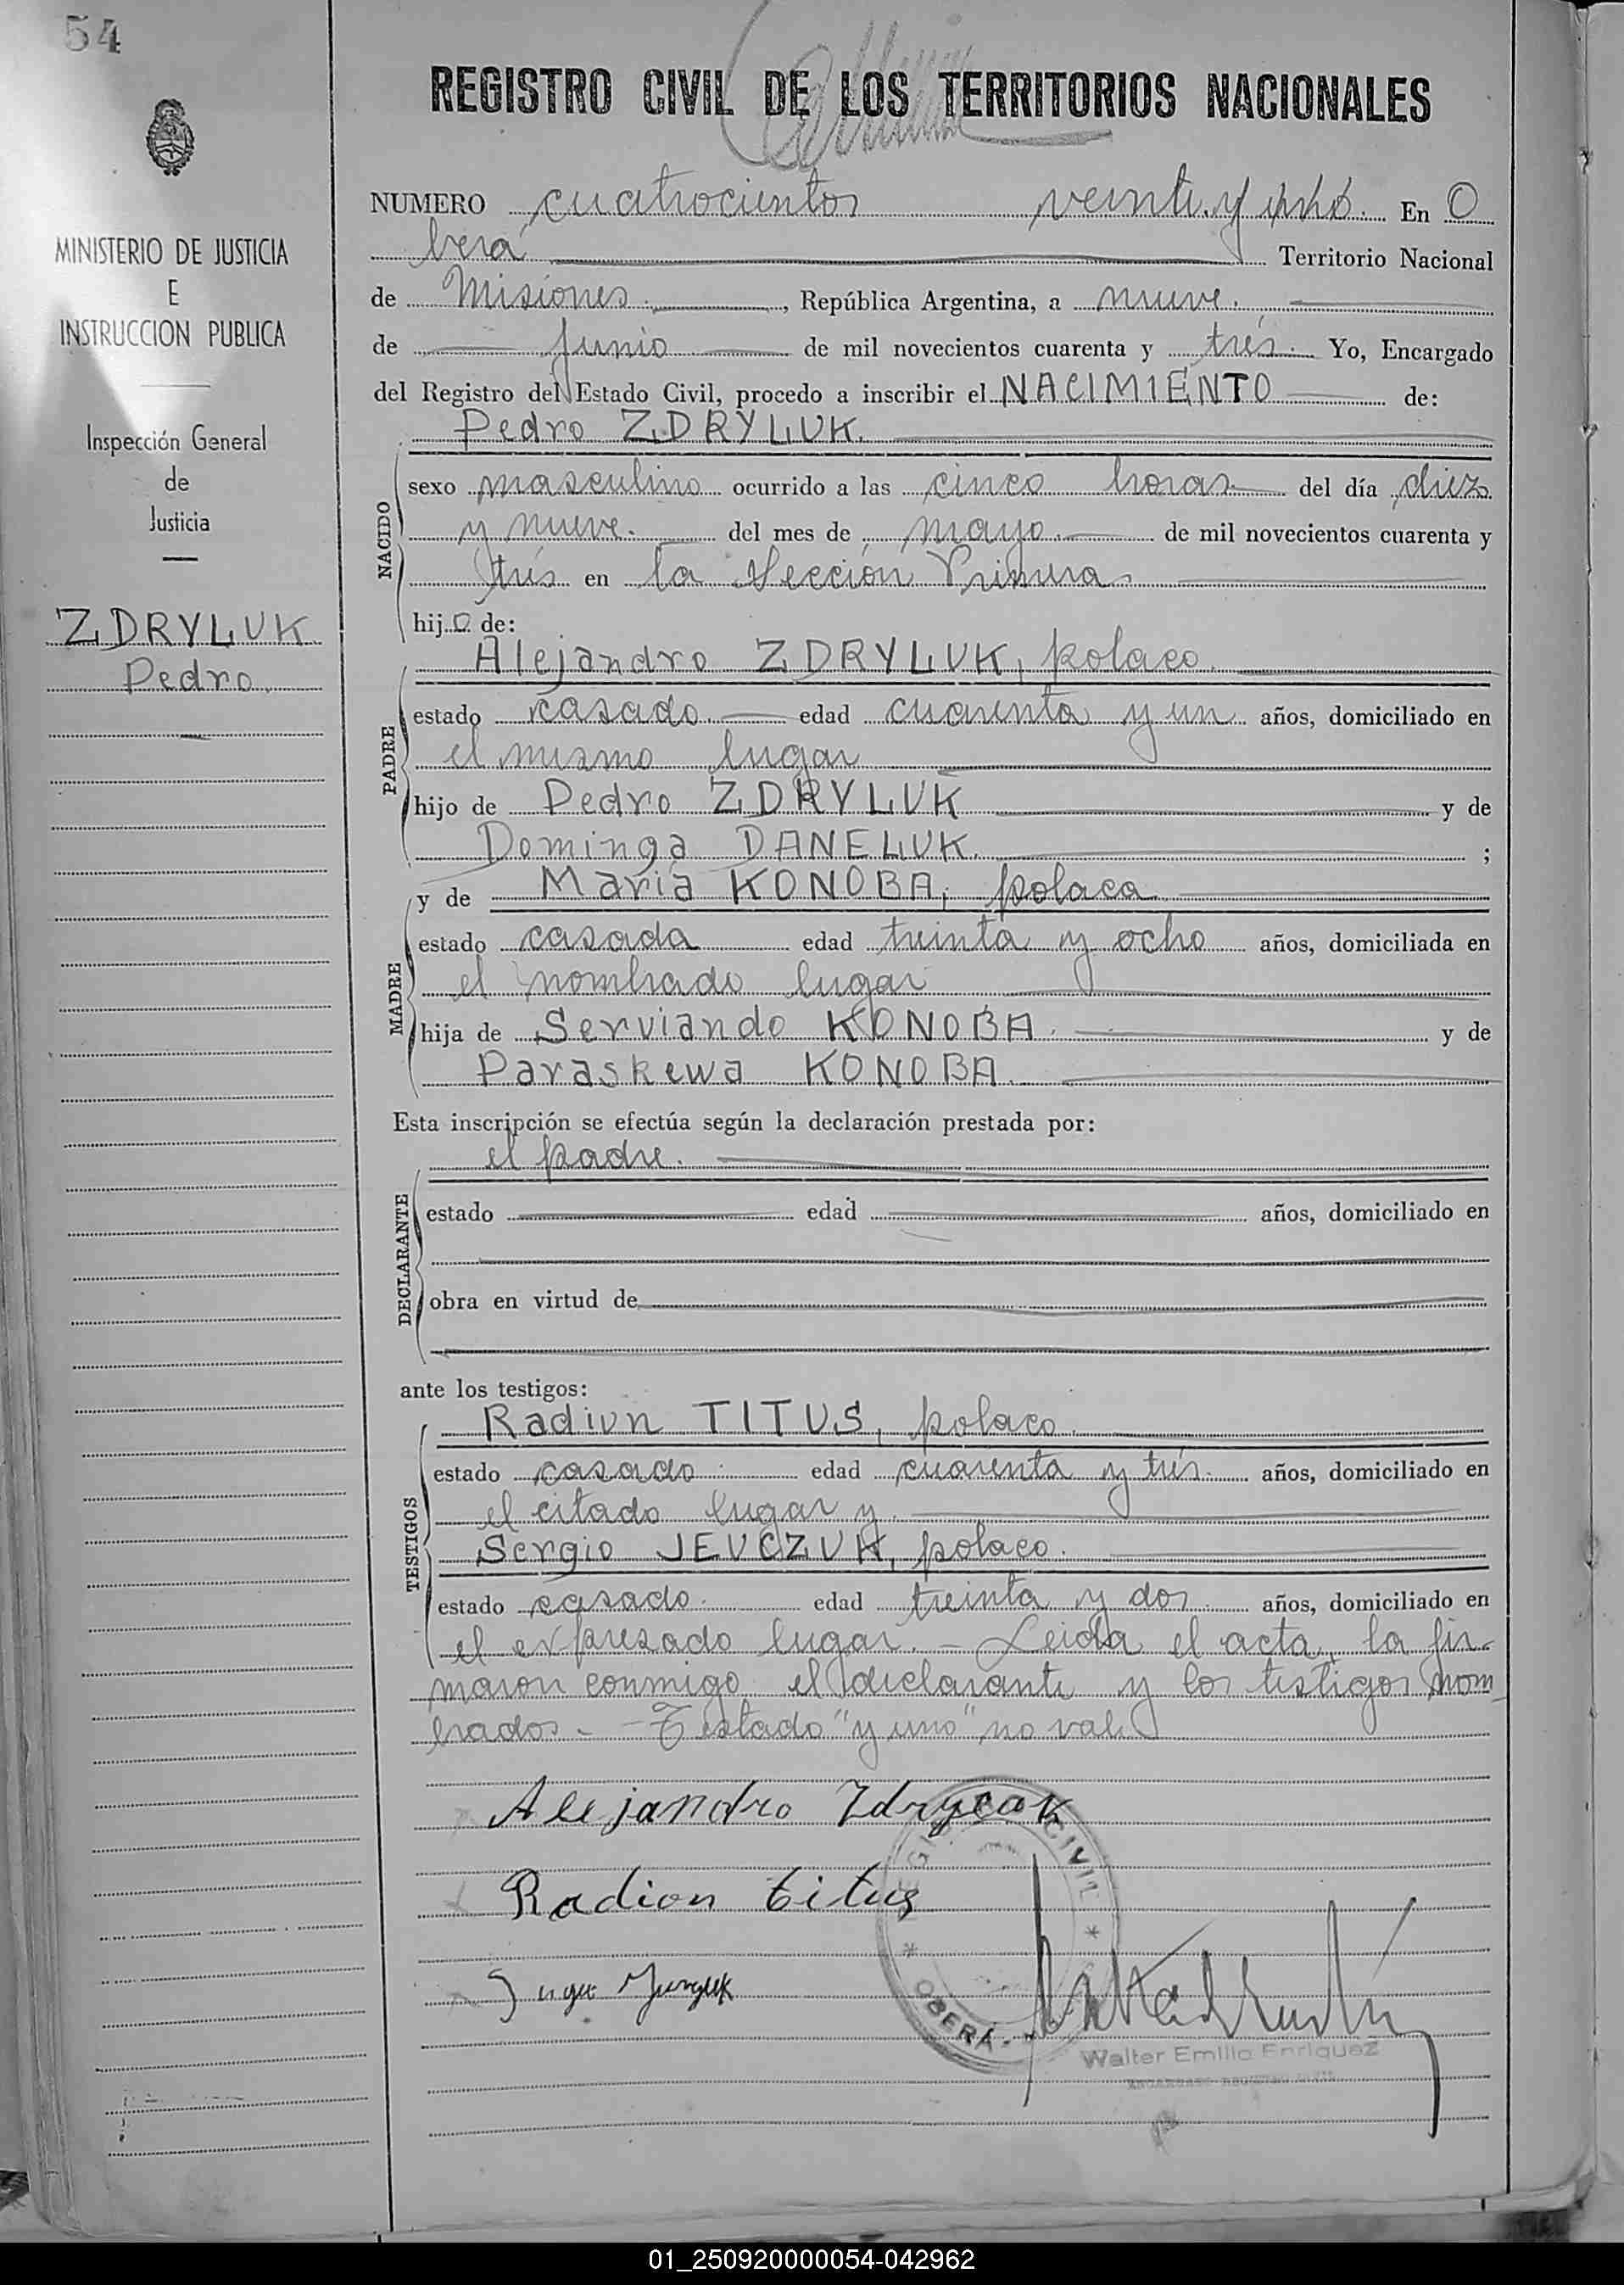 54
REGISTRO CIVIL DE LOS TERRITORIOS NACIONALES
MINISTERIO DE JUSTICIA
E
INSTRUCCION PUBLICA
Inspección General
de
Justicia
ZDRYLUK
Pedro
NUMERO cuatrocientos veinte y uno. En O
berá Territorio Nacional
de Misiones, República Argentina, a nueve.
de Junio de mil novecientos cuarenta y trés. Yo, Encargado
del Registro del Estado Civil, procedo a inscribir el NACIMIENTO de:
Pedro ZDRYLUK.
NACIDO
sexo masculino ocurrido a las cinco horas del día diez
y nueve. del mes de mayo. de mil novecientos cuarenta y
trés en la Sección Primera
hijo de:
Alejandro ZDRYLUK, polaco.
PADRE
estado casado. edad cuarenta y un años, domiciliado en
el mismo lugar
hijo de Pedro ZDRYLUK y de
Dominga DANELUK. ;
y de Maria KONOBA, polaca
MADRE
estado casada edad treinta y ocho años, domiciliada en
el nombrado lugar
hija de Serviando KONOBA. y de
Paraskewa KONOBA.
Esta inscripción se efectúa según la declaración prestada por:
el padre.
DECLARANTE
estado edad años, domiciliado en
obra en virtud de
ante los testigos:
Radiun TITUS, polaco.
TESTIGOS
estado casado. edad cuarenta y trés. años, domiciliado en
el citado lugar y
Sergio JEUCZUK, polaco.
estado casado. edad treinta y dos. años, domiciliado en
el expresado lugar. - Leida el acta, la fir-
maron conmigo el declarante y los testigos nom
brados. - Testado "y uno" no vale
Alejandro
Radion titus
REGISTRO CIVIL * OBERÁ - *
Walter Emilio Enriquez
01_250920000054-042962